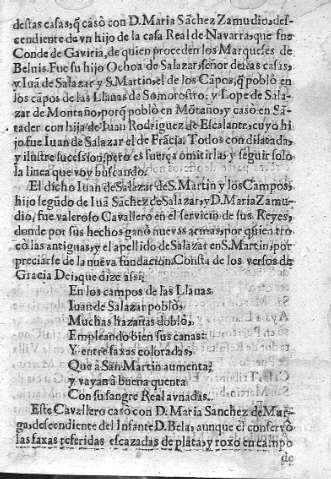 destas casas, q̃ casò con D. Maria Sãchez Zamudio, des-
cendiente de vn hijo de la casa Real de Navarra, que fue
Conde de Gaviria, de quien proceden los Marqueses de
Belnis. Fue su hijo Ochoa de Salazar, señor destas casas,
y Iuã de Salazar y S. Martin, el de los Cãpos, q̃ poblò en
los cãpos de las Llanas de Somorostro; y Lope de Sala-
zar de Montaño, porq̃ poblò en Mõtaño, y casò en Sã-
tader con hija de Iuan Rodriguez de Escalante, cuyo hi
jo fue Iuan de Salazar el de Frãcia. Todos con dilatada,
y ilustre succession, pero es fuerça omitirlas, y seguir solo
la linea que voy buscando.
El dicho Iuan de Salazar de S. Martin y los Campos,
hijo segũdo de Iuã Sãchez de Salazar, y D. Maria Zamu-
dio, fue valeroso Cavallero en el servicio de sus Reyes,
donde por sus hechos ganò nuevas armas, por quien tro
cò las antiguas, y el apellido de Salazar en S. Martin, por
preciarse de la nueva fundacion. Consta de los versos de
Gracia Dei, que dize assi:
En los campos de las Llanas
Iuan de Salazar poblò,
Muchas hazañas doblò,
Empleando bien sus canas:
Y entre faxas coloradas,
Que à San Martin aumenta,
y vayan à buena quenta
Con su sangre Real aynadas.
Este Cavallero casò con D. Maria Sanchez de Mur-
ga, descendiente del Infante D. Bela, aunque el conservò
las faxas referidas escazadas de plata, y roxo en campo
de